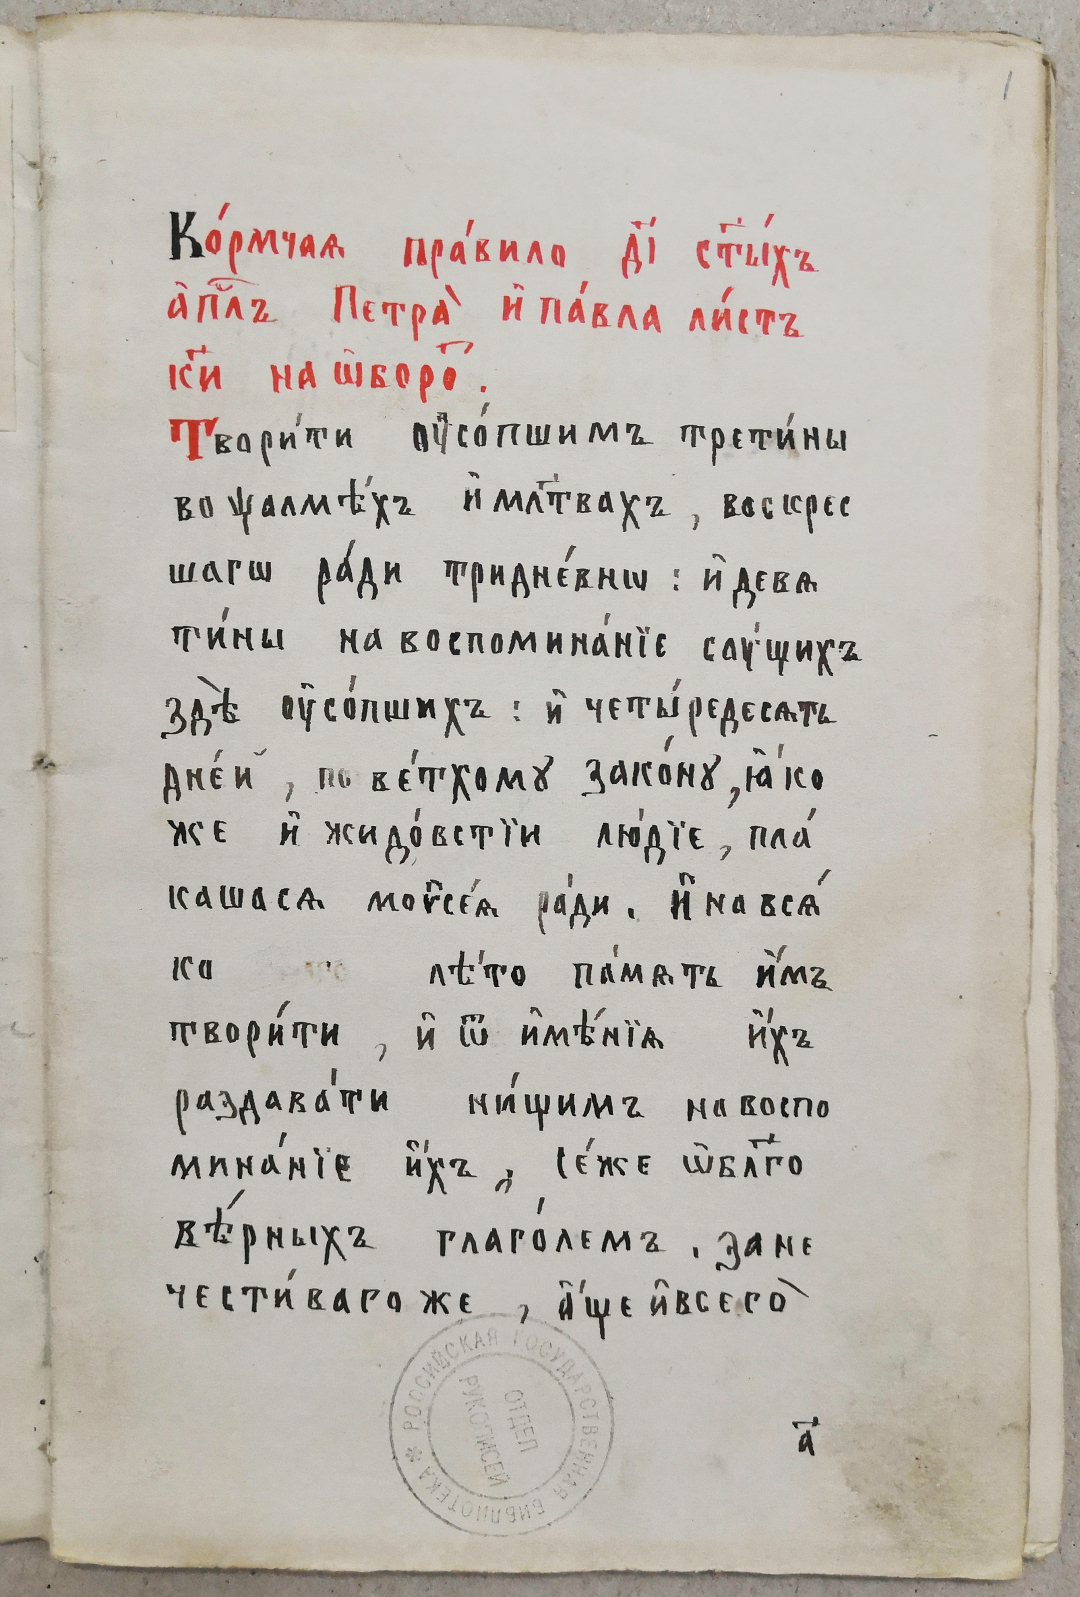 1
Ко́рмчаѧ пра́вило д҃і ст҃ы́хъ
а҆пⷭ҇лъ Петра̀ и҆ па́вла ли́стъ
к҃и на ѡ҆боро́т.
Твори́ти ᲂу҆со́пшимъ трети́ны
во ѱалмѣ́хъ и҆ млт҃вахъ, воскрес
шагѡ ра́ди тридне́внѡ : и҆ девѧ
ти́ны на воспомина́нїе сꙋ́щихъ
здѣ̀ ᲂу҆со́пшихъ : и҆ четы́редесѧть
дне́й, по ве́тхомꙋ зако́нꙋ, ꙗ҆́ко
же и҆ жидо́встїи лю́дїе, пла́
кашасѧ моѷсе́ѧ ра́ди. И҆ на всѧ́
ко лѣ́то па́мѧть и҆̀мъ
твори́ти, и҆ ѿ и҆мѣ́нїѧ и҆́хъ
раздава́ти ни́щимъ на воспо
мина́нїе и҆́хъ, се́же ѡ҆ бл҃го
вѣ́рныхъ глаго́лемъ. зане
чести́ваго же, а҆́ще и҆ всего̀
а҃
РОССИЙСКАЯ ГОСУДАРСТВЕННАЯ БИБЛИОТЕКА *
ОТДЕЛ
РУКОПИСЕЙ